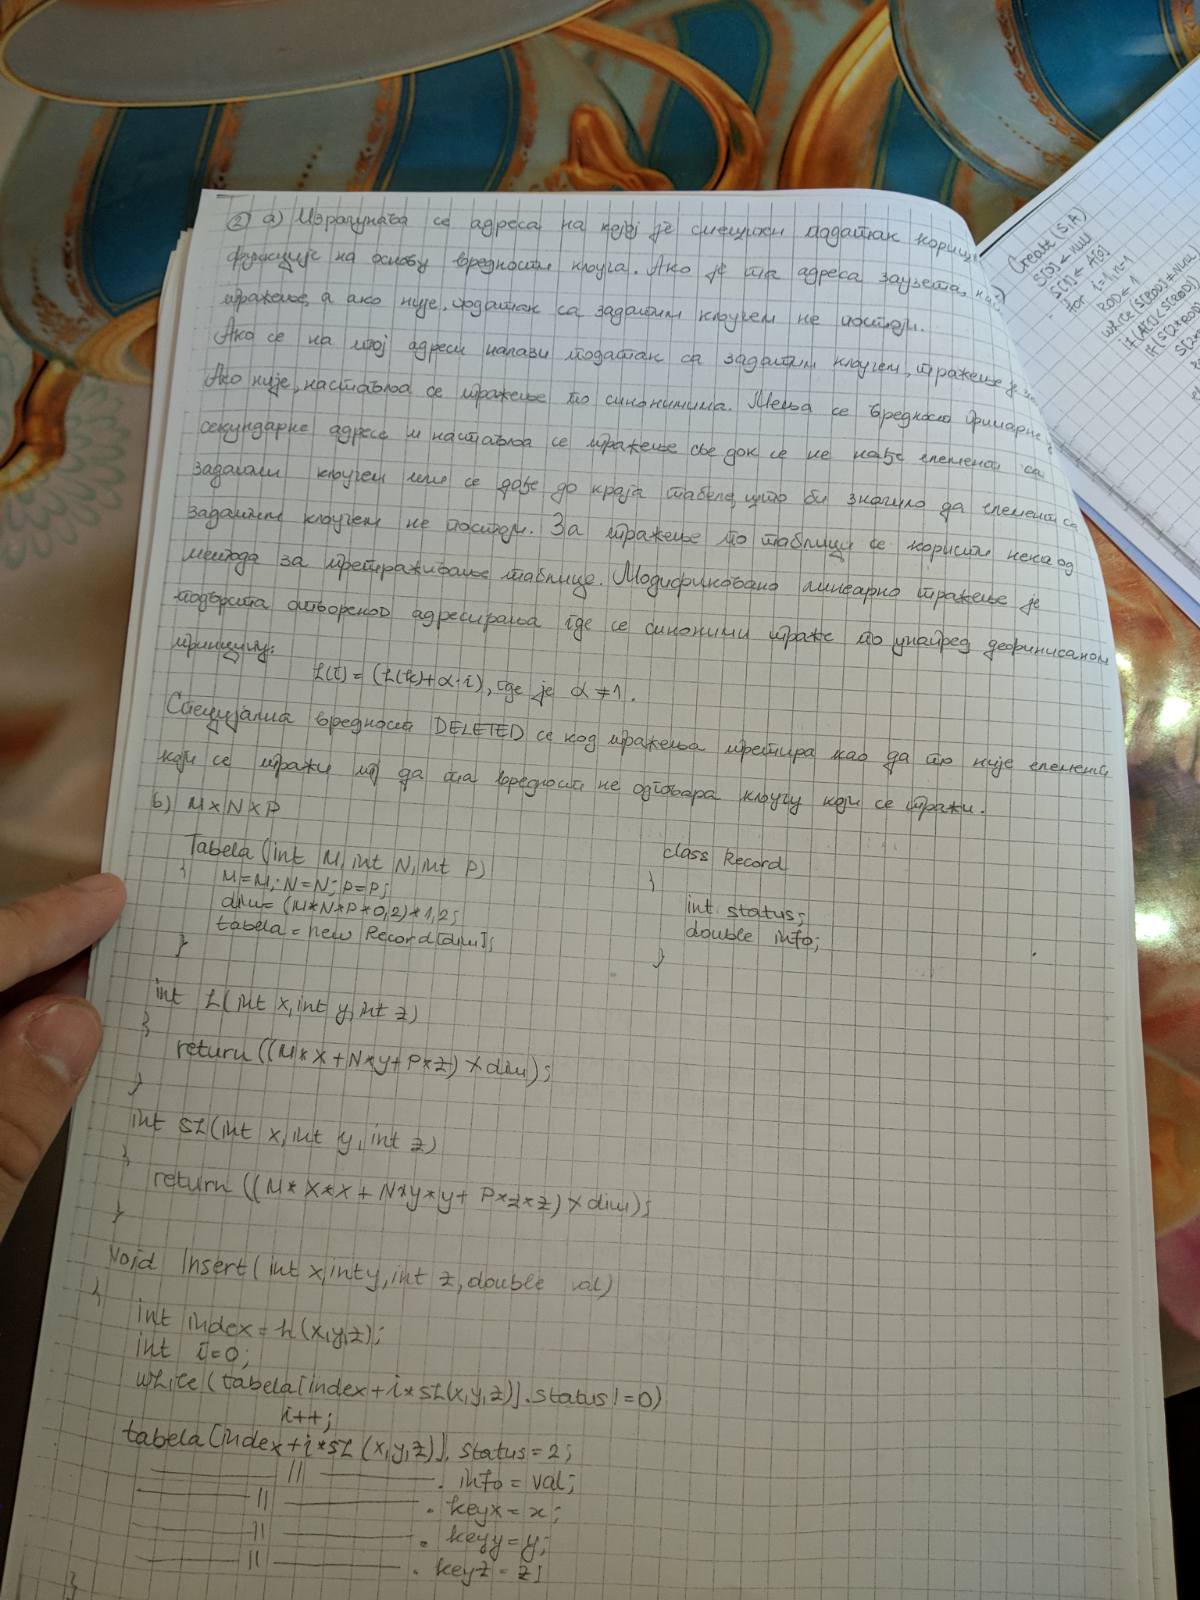 ② а) Израчунава се адреса на којој је смештен податак
функције на основу вредности кључа. Ако је та адреса заузета,
тражење, а ако није, податак са задатим кључем не постоји.
Ако се на тој адреси налази податак са задатим кључем, тражење је
Ако није, наставља се тражење по синонимима. Мења се вредност примарне
секундарне адресе и наставља се тражење све док се не нађе елемент са
задатим кључем или се дође до краја табеле, што би значило да елемент са
задатим кључем не постоји. За тражење по таблици се користи нека од
метода за претраживање таблице. Модификовано линеарно тражење је
подврста отвореног адресирања где се синоними траже по унапред дефинисаном
принципу:
h(i) = (h(k)+α·i), где је α≠1.
Специјална вредност DELETED се код тражења третира као да то није елемент
који се тражи да та вредност не одговара кључу који се тражи.
b) M×N×P
Tabela (int M, int N, int P)
{
M=M; N=N; P=P;
dim= (M*N*P*0,2)*1,2;
tabela = new Record[dim];
}
class Record
{
int status;
double info;
}
int h(int x, int y, int z)
{
return ((M*x+N*y+P*z) % dim);
}
int sh(int x, int y, int z)
{
return ((M*x*x + N*y*y + P*z*z) % dim);
}
Void Insert(int x, int y, int z, double val)
{
int index = h(x,y,z);
int i=0;
while (tabela[index + i*sh(x,y,z)].status != 0)
i++;
tabela[index+i*sh(x,y,z)].status = 2;
—— // ——. info = val;
—— // ——. keyx = x;
—— // ——. keyy = y;
—— // ——. keyz = z;
}
Create (S,A)
S[0] ← null
S[1] ← A[0]
for i=1, n-1
ROD ← 1